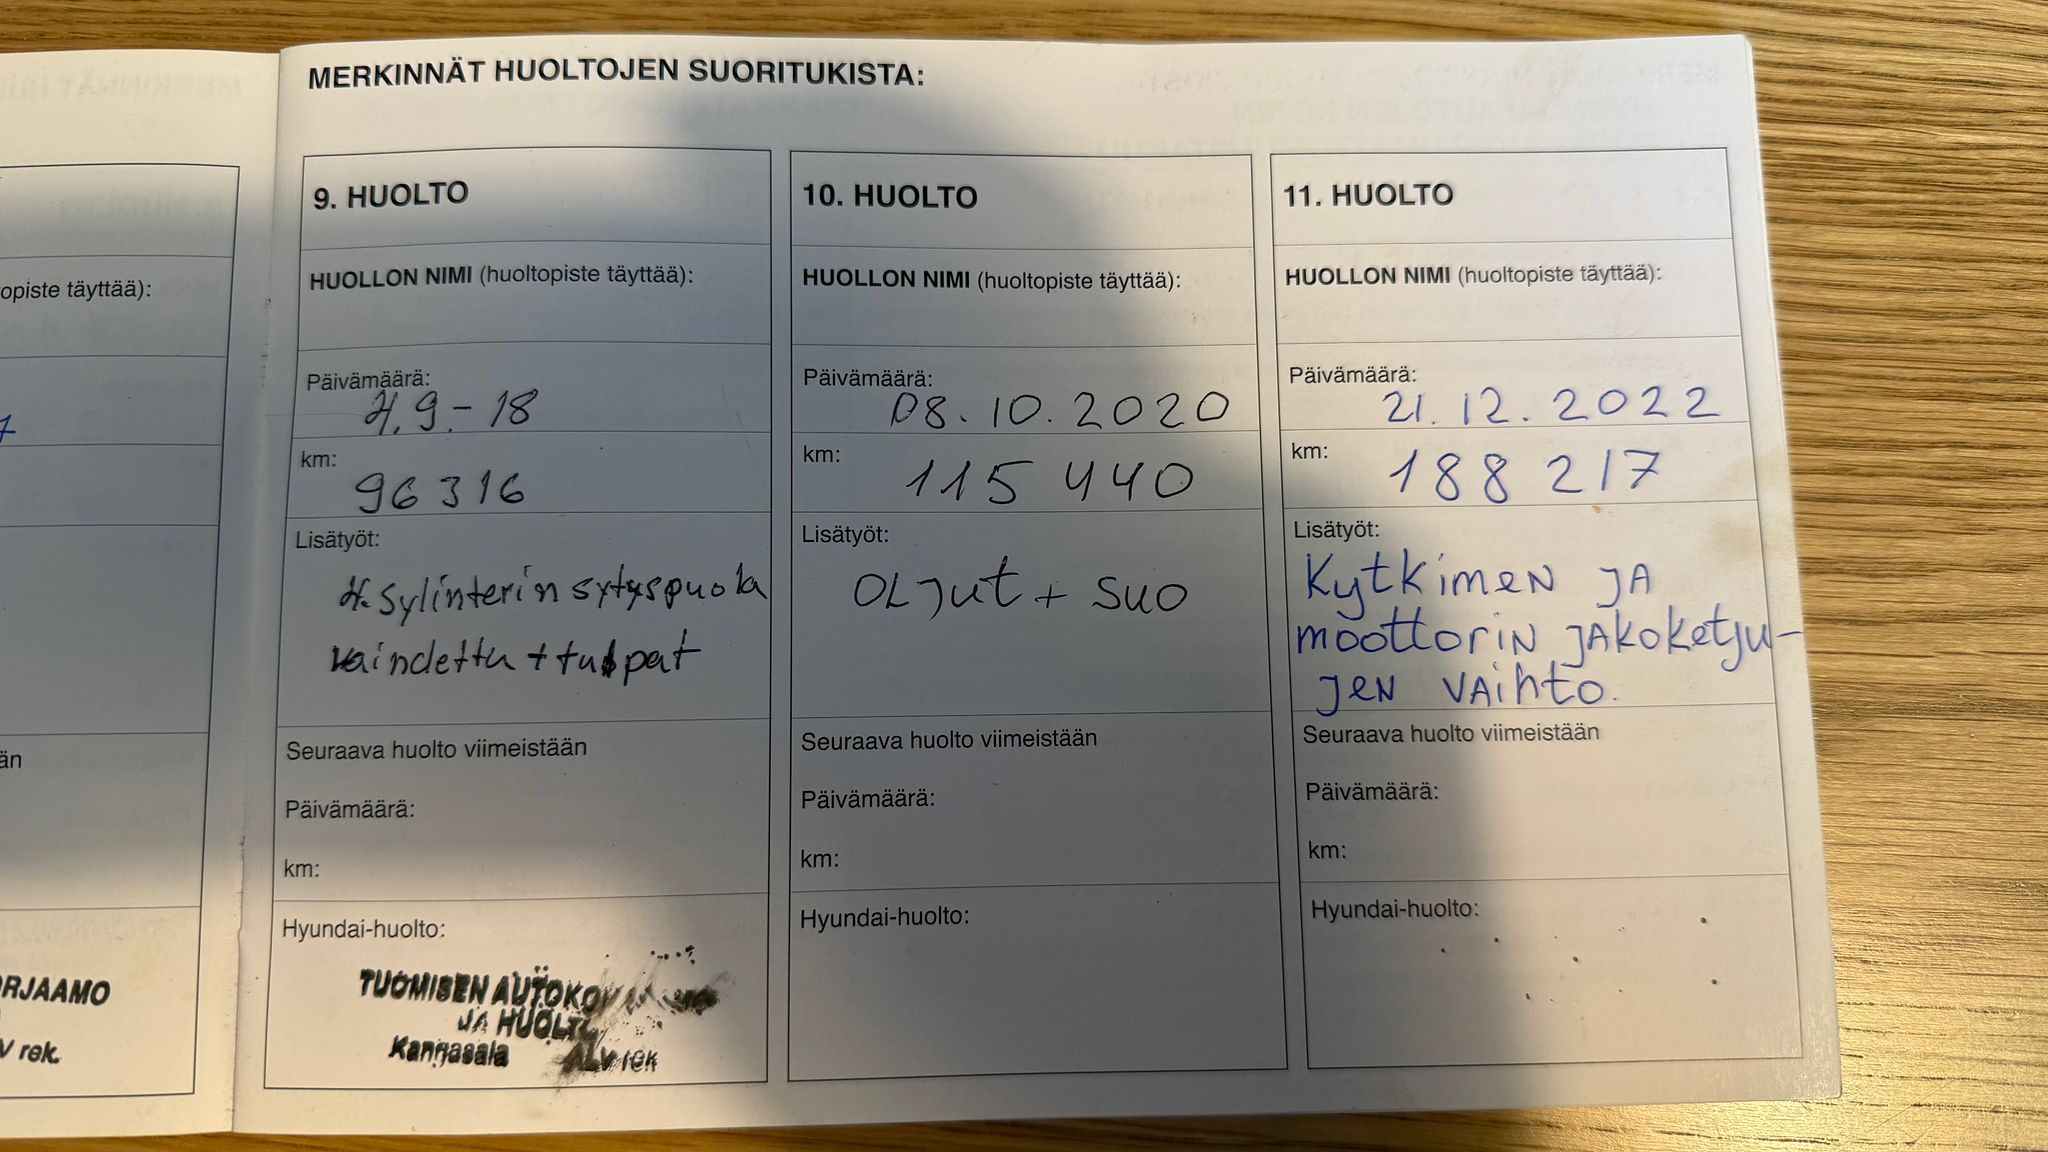 MERKINNÄT HUOLTOJEN SUORITUKISTA:
opiste täyttää):
än
RJAAMO
V rek.
9. HUOLTO
HUOLLON NIMI (huoltopiste täyttää):
Päivämäärä:
4.9.-18
km:
96316
Lisätyöt:
4. Sylinterin sytyspuola
vaindettu + tulpat
Seuraava huolto viimeistään
Päivämäärä:
km:
Hyundai-huolto:
TUOMISEN
JA HUOLTO
Kangasala ALV rek
10. HUOLTO
HUOLLON NIMI (huoltopiste täyttää):
Päivämäärä:
08.10.2020
km:
115 440
Lisätyöt:
OLjut + SUO
Seuraava huolto viimeistään
Päivämäärä:
km:
Hyundai-huolto:
11. HUOLTO
HUOLLON NIMI (huoltopiste täyttää):
Päivämäärä:
21.12.2022
km:
188 217
Lisätyöt:
Kytkimen JA
moottorin jakoketju-
jen vaihto.
Seuraava huolto viimeistään
Päivämäärä:
km:
Hyundai-huolto: